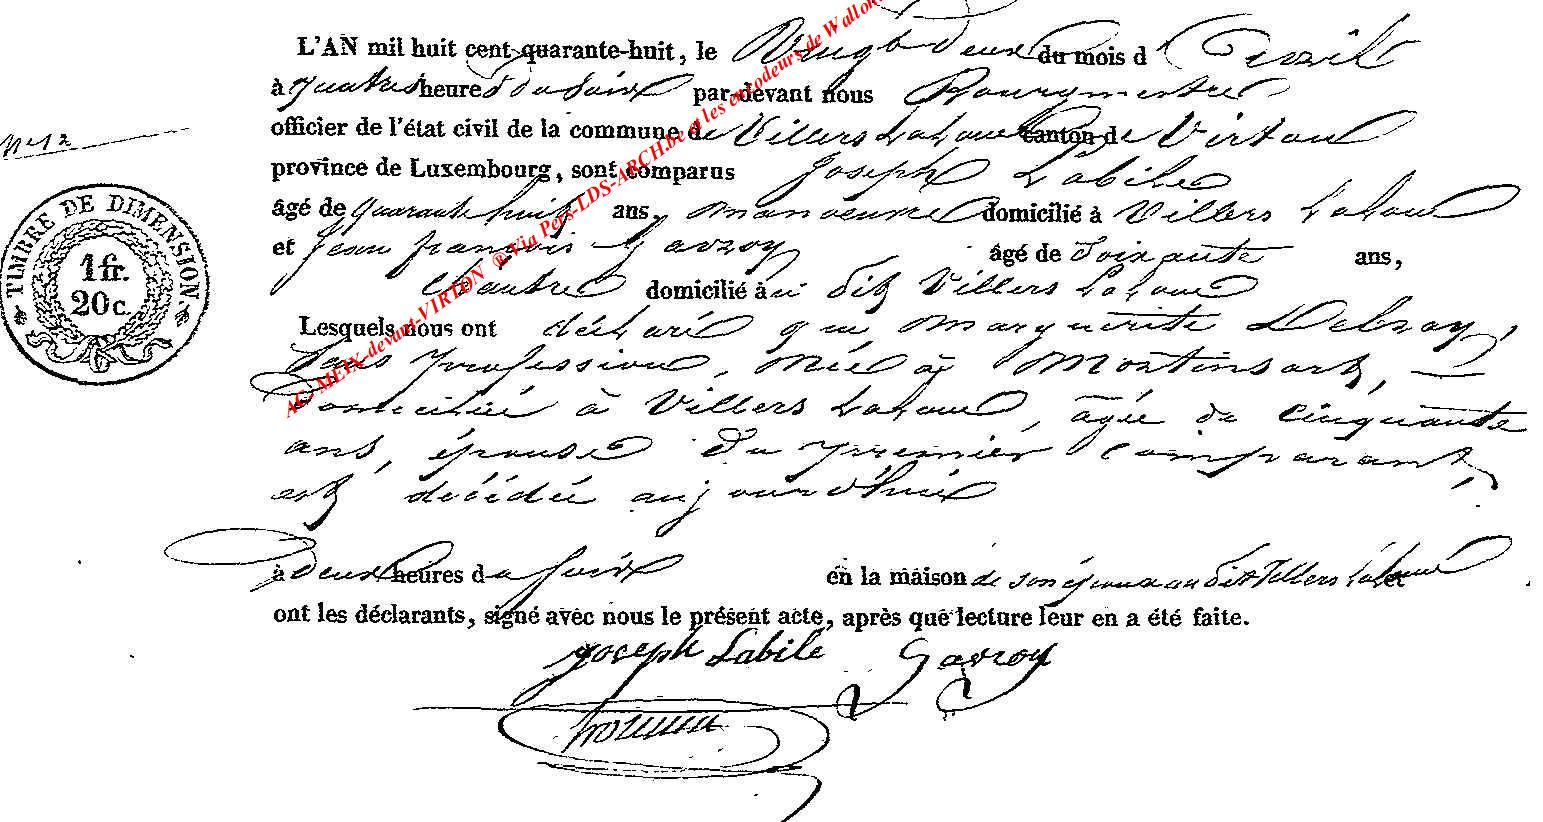 L'AN mil huit cent quarante-huit, le Vingt deux du mois d'Avril
à quatre heures du soir par devant nous Bourgmestre
officier de l'état civil de la commune de Villers Laloue canton de Virton
province de Luxembourg, sont comparus Joseph Labile
âgé de quarante huit ans, manoeuvre domicilié à Villers Laloue
et Jean françois Gavroy âgé de Soixante ans,
Chantre domicilié à dit Villers Laloue
Lesquels nous ont déclaré que Marguerite
Sans profession, née à Montinsart,
domiciliée à Villers Laloue, âgée de Cinquante
ans, épouse du premier Comparant,
est décédée aujourd'hui
à deux heures du soir en la maison de son époux au dit Villers Laloue et
ont les déclarants, signé avec nous le présent acte, après que lecture leur en a été faite.
Joseph Labile Gavroy
N° 12
TIMBRE DE DIMENSION.
1 fr.
20 c.
AG- MEIX-devant-VIRTON ® Via Pers-LDS-ARCH.be et les encodeurs de Wallon